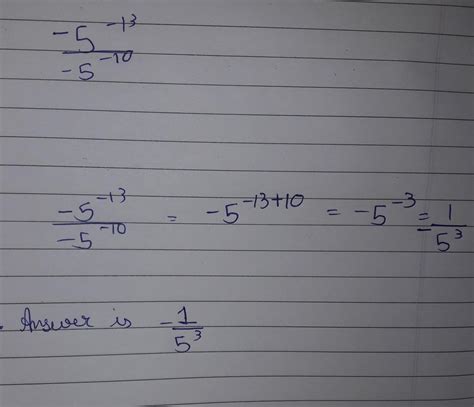 -5^-13 / -5^-10
-5^-13 / -5^-10 = -5^-13+10 = -5^-3 = -1/5^3
Answer is -1/5^3